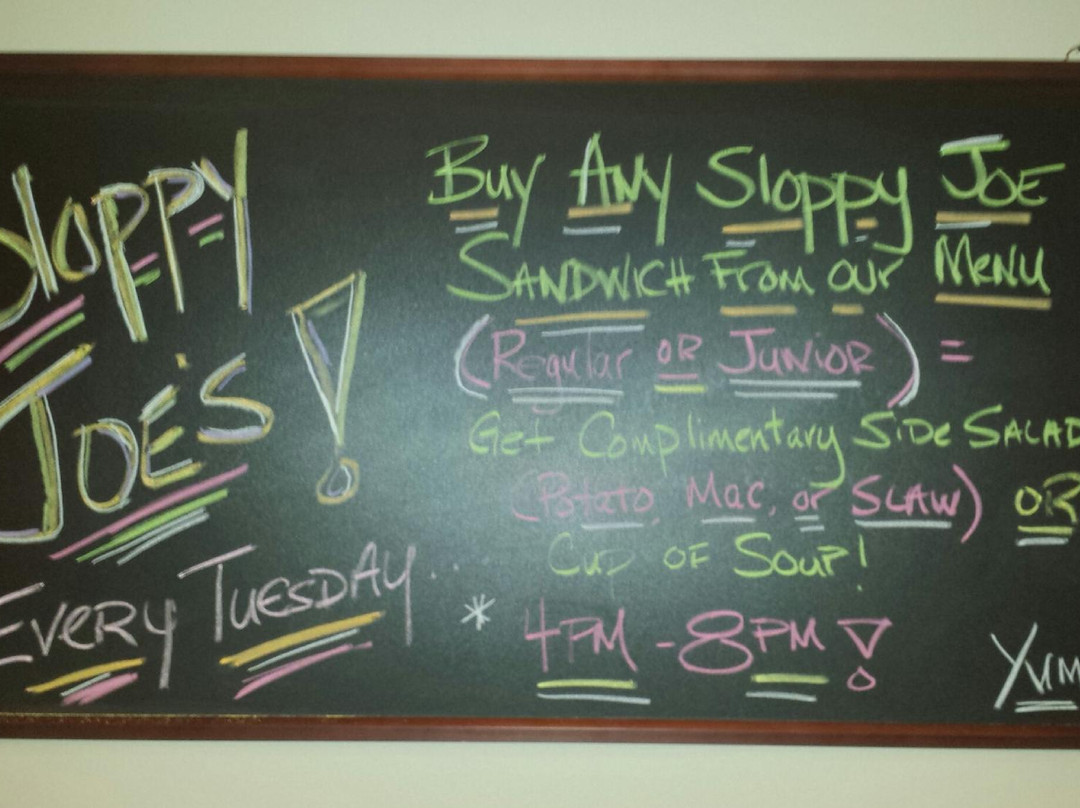 Sloppy
JOE'S!
EVERY TUESDAY...
Buy ANY Sloppy JOE
SANDWICH FROM our MENU
(Regular OR JUNIOR) =
Get Complimentary SIDE SALAD
(Potato, Mac, or SLAW) OR
Cup OF SOUP!
* 4PM - 8PM!
YUM